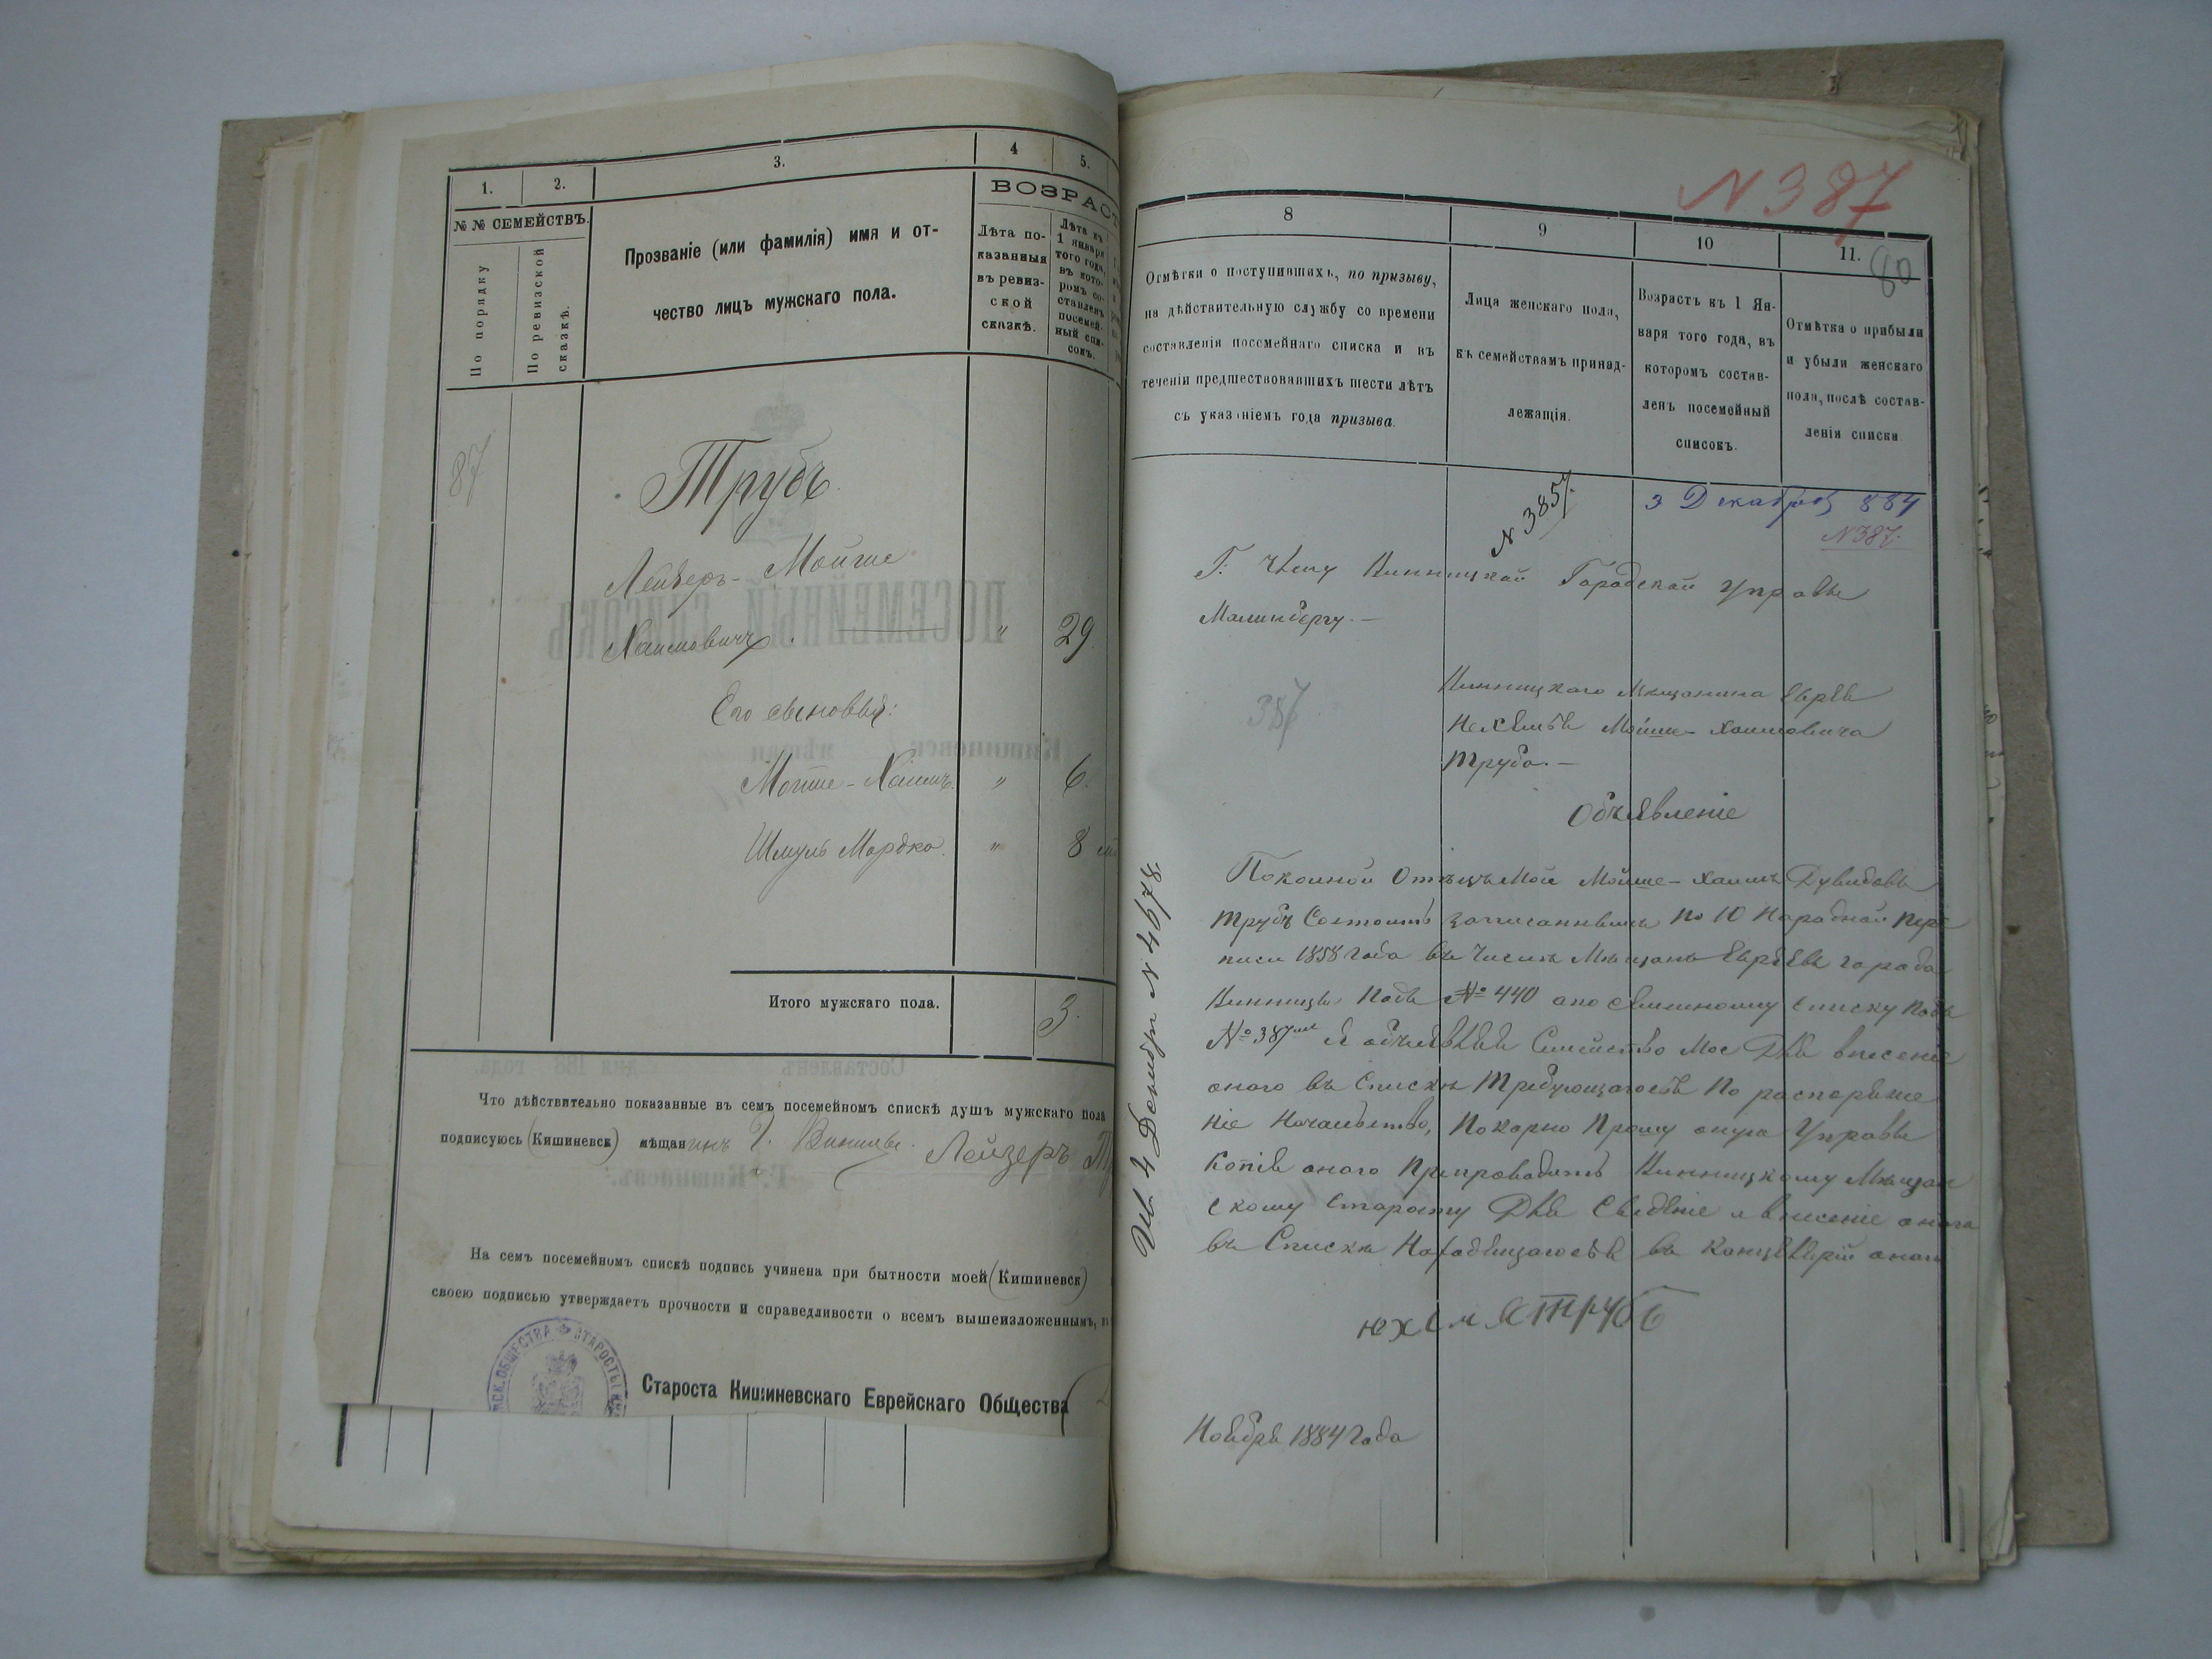 1. 2. 3. 4 5.
№ № СЕМЕЙСТВЪ.
По порядку
По ревизской сказкѣ.
Прозваніе (или фамилія) имя и от-
чество лицъ мужскаго пола.
ВОЗРАСТ
Лѣта по-
казанныя
въ ревиз-
ской
сказкѣ.
Лѣта къ
1 января
того года,
въ кото-
ромъ со-
ставленъ
посемей-
ный спи-
сокъ.
87
Трубъ
Лейзеръ-Мойше
Хаимовичъ. " 29.
Его сыновья:
Мойше-Хаимъ. " 6.
Шмуль Мордко. " 8
Итого мужскаго пола. 3.
Что дѣйствительно показанные въ семъ посемейномъ спискѣ душъ мужскаго пола
подписуюсь (Кишиневск) мѣщанинъ Г. Винницы. Лейзеръ
На семъ посемейномъ спискѣ подпись учинена при бытности моей (Кишиневск)
своею подписью утверждаетъ прочности и справедливости о всемъ вышеизложенномъ,
Староста Кишиневскаго Еврейскаго Общества
N 387
80
8 9 10 11.
Отмѣтки о поступившихъ, по призыву,
на дѣйствительную службу со времени
составленія посемейнаго списка и въ
теченіи предшествовавшихъ шести лѣтъ
съ указаніемъ года призыва.
Лица женскаго пола,
къ семействамъ принад-
лежащія.
Возрастъ къ 1 Ян-
варя того года, въ
которомъ состав-
ленъ посемейный
списокъ.
Отмѣтка о прибыли
и убыли женскаго
пола, послѣ состав-
ленія списка.
N 3857.
3 Декабря 884
N387.
Г. Члену Винницкой Городской Управы
Малинбергу.—
387
Винницкаго Мѣщанина Еврея
Нехемья Мойше-Хаимовича
Труба.—
Объявленіе
Покойной Отецъ Мой Мойше-Хаимъ Дувидовъ
Трубъ Состоитъ записаннымъ по 10 Народной Пере
писи 1858 года въ Числѣ Мѣщанъ Евреевъ города
Винницы Подъ № 440 апо Семейному Списку Подъ
№ 387 я объявляя Семейство Мое Для внесеніе
оного въ Списки Требующагося По распоряже
ніе Начальство, Покорно Прошу оную Управы
Копія оного Препроводить Винницкому Мѣщан
скому Старосту Для Сведеніе и внесеніе оного
въ Списки Находящагося въ Канцелярій оной
нехемя Трубъ
Ноября 1884 Года
4 Декабря N 4678.